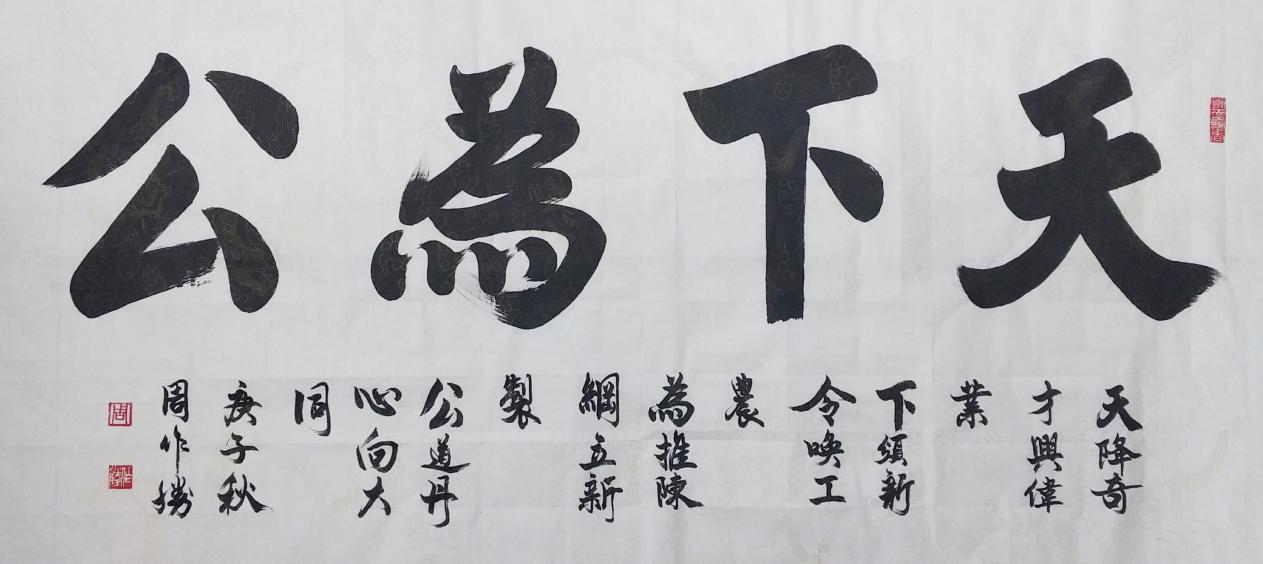 天下為公
天降奇
才興偉
業
下頒新
令喚工
農
為推陳
綱立新
製
公道丹
心向大
同
庚子秋
周作勝
周